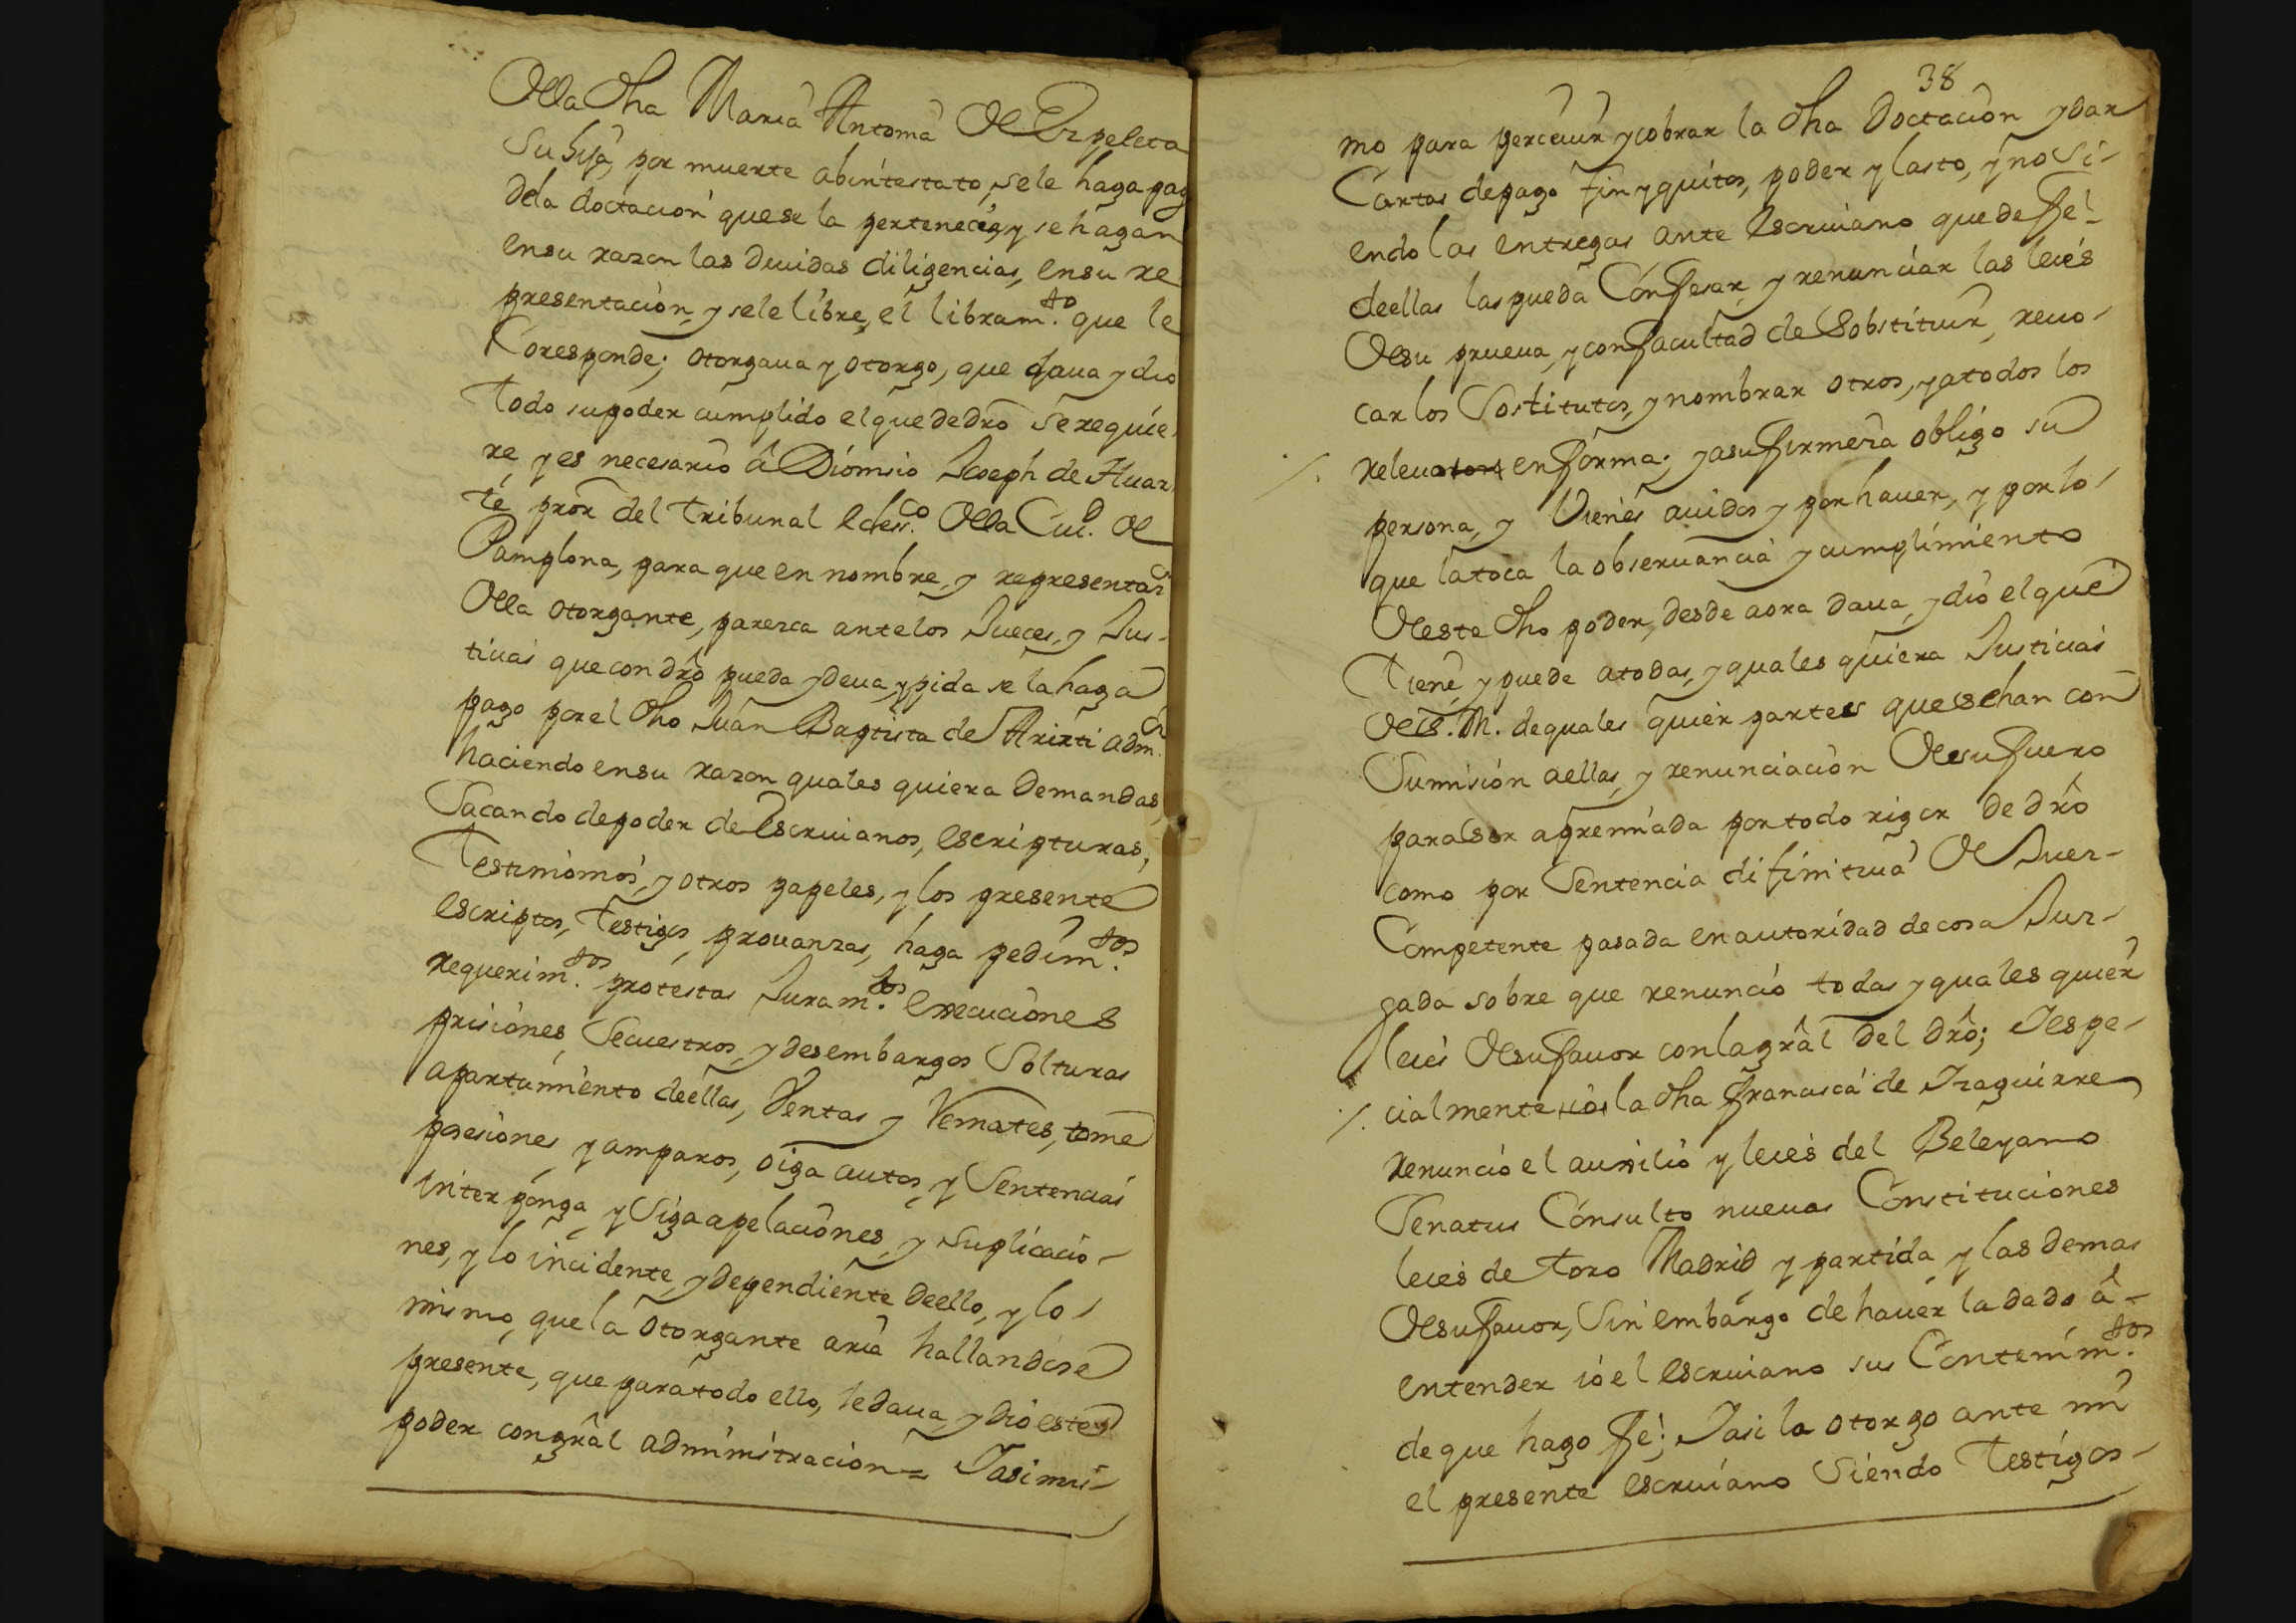 Dela dha Maria Antonia de Ezpeleta
su hija, por muerte abintestato, se le haga pag
dela doctacion que se la pertenece, y se hagan
en su razon las devidas diligencias, en su re
presentacion, y se le libre, el libram.to que le
Coresponde; otorgaua y otorgo, que daua y dio
todo su poder cumplido el que de dro se requie
re, y es necesario â Dionisio Joseph de Huar
te pror del tribunal Ecless.co dela Ciu.d de
Pamplona, para que en nombre, y representaon
dela otorgante, parezca ante los Jueces, y Jus-
ticias que con dro pueda y deua, y pida se la haga
pago por el dho Juan Baptista de Arizti adm.or
haciendo en su razon quales quiera Demandas,
Sacando de poder de Escriuianos, escripturas,
Testimonios, y otros papeles, y los presente
escriptos, testigos, prouanzas, haga pedim.tos
requerim.tos protestas Juram.tos execuciones
prisiones, Secuestros, y desembargos Solturas
apartamiento de ellas, Ventas y Remates, tome
posesiones y amparos, oiga autos, y Sentencias
interponga, y Siga apelaciones, y suplicacio-
nes, y lo incidente, y dependiente de ello, y lo
mismo, que la otorgante aria hallandose
presente, que para todo ello, le daua, y dio este
poder con grâl administracion = Y asi mis-
38
mo para perceuir y cobrar la dha Doctacion y dar
Cartas de pago finyquitos, poder y lasto, y no Si-
endo las entregas ante escriuiano que de fe
de ellas las pueda Confesar, y renunciar las leies
de su prueua, y con facultad de Sobstituir, reuo-
car los Sostitutos, y nombrar otros, y a todos los
releuo en forma; y a su firmeza obligo su
persona, y Vienes auidos y por hauer, y por lo
que la toca la obseruancia y cumplimiento
de este dho poder, desde aora daua, y dio el que
tiene y puede a todas, y quales quiera Justicias
de S. M. de quales quier partes que sehan con
Sumision a ellas, y renunciacion de su fuero
para ser apremiada por todo rigor de drô
como por Sentencia difinitiua de Juez
Competente pasada en autoridad de cosa Juz-
gada sobre que renuncio todas y quales quier
leies de su fauor con la grâl del drô; Y espe-
cialmente la dha francisca de Yzaguirre
renuncio el auxilio y leies del Beleyano
Senatus Consulto nueuas Constituciones
leies de toro Madrid y partida y las demas
de su fauor, Sin embargo de hauer la dado â
entender io el escriuiano sus Contenim.tos
de que hago fe; Y asi lo otorgo ante mi
el presente escriuiano Siendo Testigos